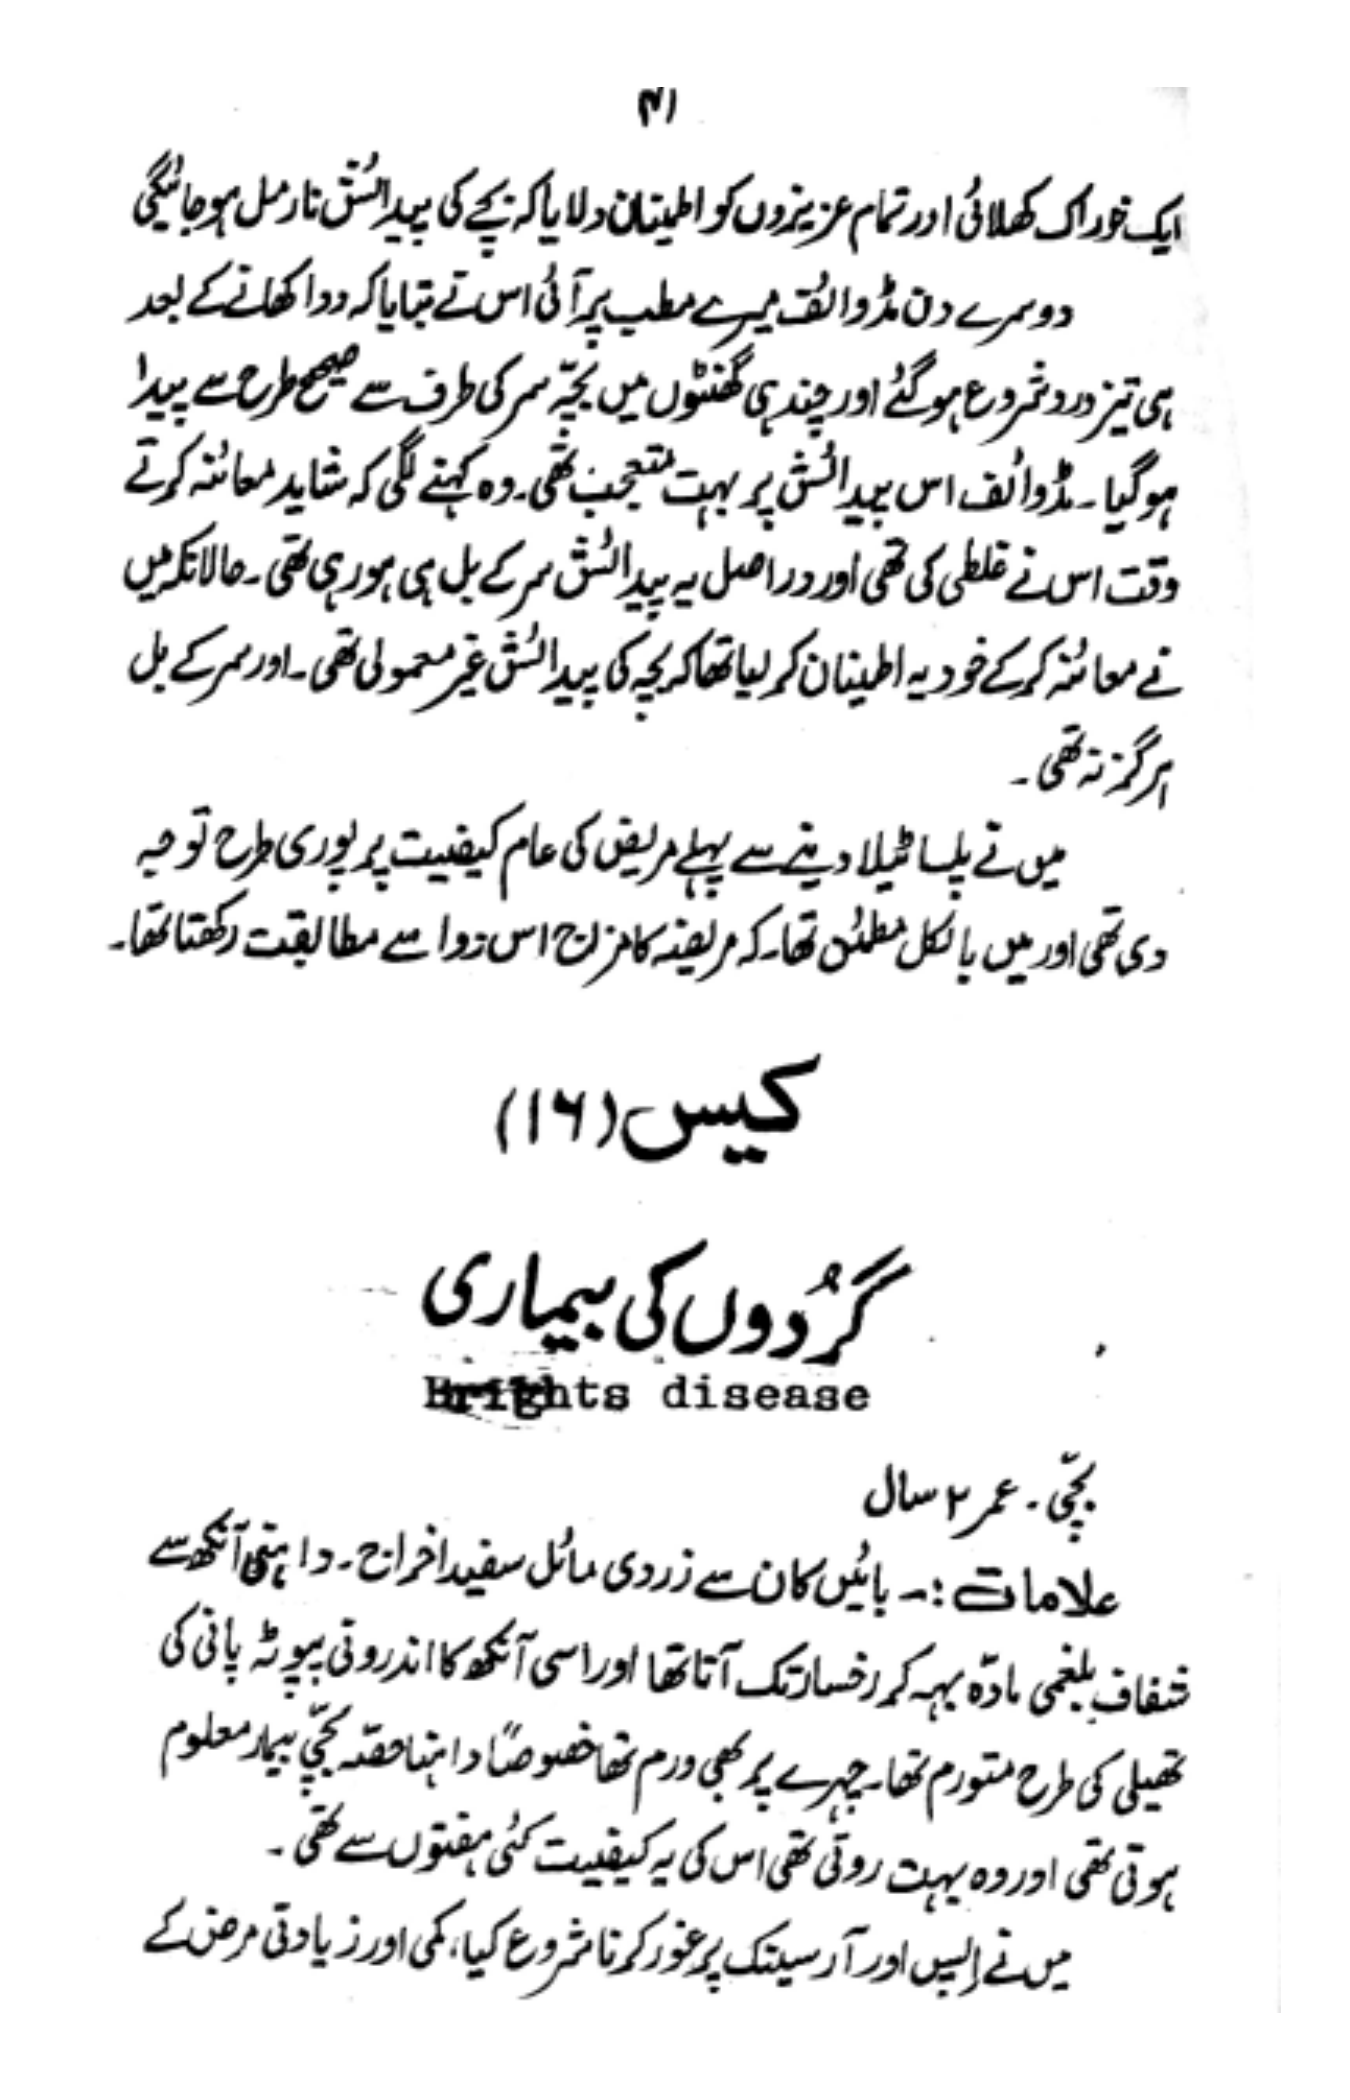 ۴۱
ایک خوراک کھلائی اور تمام عزیزوں کو اطینان دلایا کہ بچے کی پیدائش نارمل ہو جائیگی
دوسرے دن مڈوائف میرے مطب پر آئی اس نے بتایا کہ دوا کھانے کے بعد
ہی تیز درد شروع ہو گئے اور چند ہی گھنٹوں میں بچّہ سر کی طرف سے صحیح طرح سے پیدا
ہو گیا ۔ مڈوائف اس پیدائش پر بہت متعجب تھی ۔ وہ کہنے لگی کہ شاید معائنہ کرتے
وقت اس نے غلطی کی تھی اور دراصل یہ پیدائش سر کے بل ہی ہو رہی تھی ۔ حالانکہ میں
نے معائنہ کر کے خود یہ اطینان کر لیا تھا کہ بچہ کی پیدائش غیر معمولی تھی ۔ اور سر کے بل
ہرگز نہ تھی ۔
میں نے پلساٹیلا دینے سے پہلے مریض کی عام کیفیت پر پوری طرح توجہ
دی تھی اور میں بالکل مطمئن تھا ۔ کہ مریضہ کا مزاج اس دوا سے مطابقت رکھتا تھا ۔
کیس (۱۶)
گُردوں کی بیماری
Brights disease
بچّی ۔ عمر ۲ سال
علامات :۔ بائیں کان سے زردی مائل سفید اخراج ۔ داہنی آنکھ سے
شفاف بلغمی مادّہ بہہ کر رخسار تک آتا تھا اور اسی آنکھ کا اندرونی پپوٹہ پانی کی
تھیلی کی طرح متورم تھا ۔ چہرے پر بھی ورم تھا خصوصاً داہنا حصّہ بچّی بیمار معلوم
ہوتی تھی اور وہ بہت روتی تھی اس کی یہ کیفیت کئی ہفتوں سے تھی ۔
میں نے اِپیس اور آرسینک پر غور کرنا شروع کیا، کمی اور زیادتی مرض کے